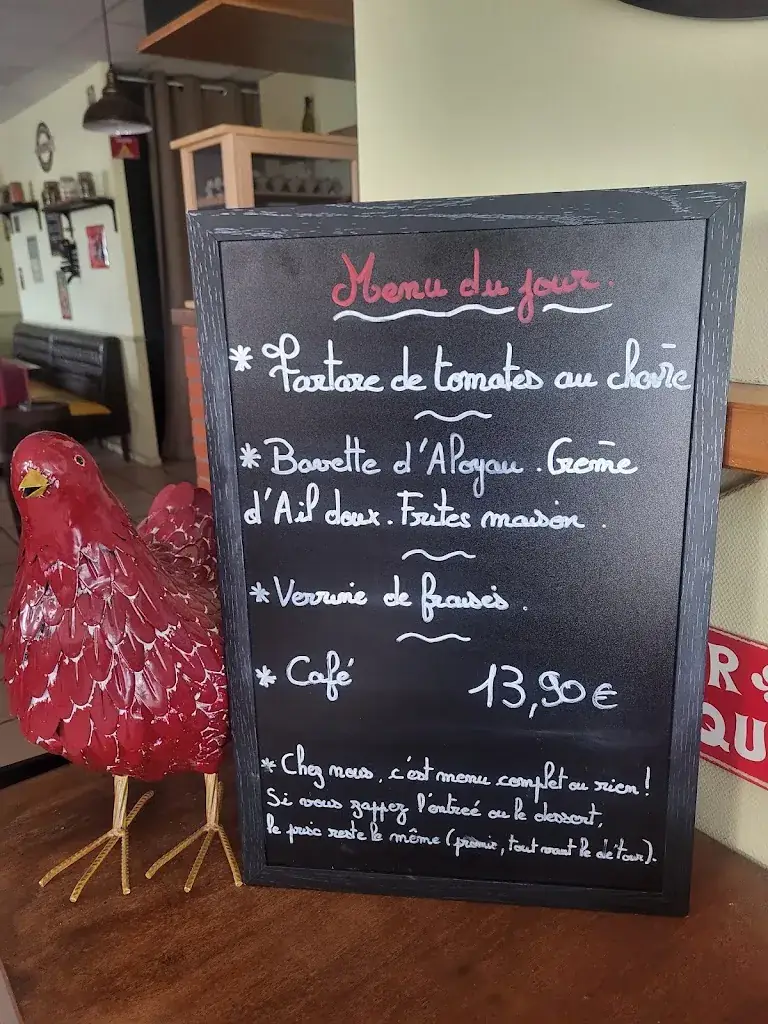 Menu du jour.
* Tartare de tomates au chèvre
* Bavette d'Aloyau. Crème
d'Ail doux. Frites maison.
* Verrine de fraises.
* Café 13,90€
* Chez nous, c'est menu complet ou rien!
Si vous zappez l'entreé ou le dessert,
le prix reste le même (promis, tout vaut le détour).
R
QU